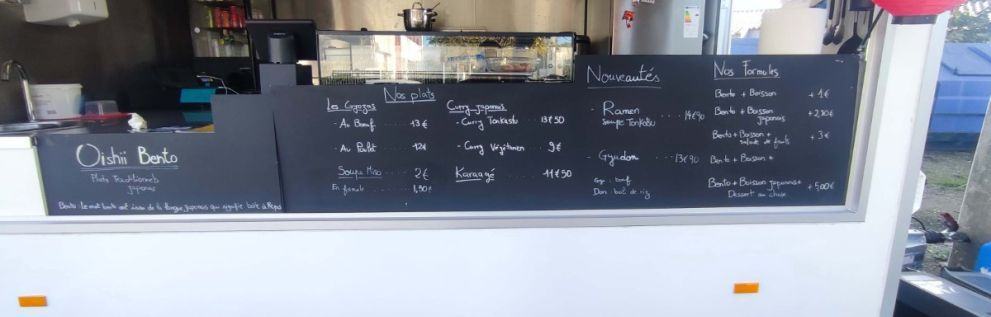 Oishii Bento
Plats Traditionnels
japonais
Bento : Le mot bento est issu de la langue japonais qui signifie boîte à Repas
Nos plats
Les Gyozas
- Au Bœuf 13€
- Au Poulet 12€
Soupe Miso 2€
En formule 1,50€
Curry japonais
- Curry Tonkatsu 13€50
- Curry Végétarien 9€
Karaagé 11€50
Nouveautés
- Ramen 14€90
soupe Tonkotsu
- Gyudon 13€90
Gyu : bœuf
Don : bol de riz
Nos Formules
Bento + Boisson + 1€
Bento + Boisson japonais + 2,50€
Bento + Boisson + salade de fruits + 3€
Bento + Boisson +
Bento + Boisson japonais + + 5,00€
Dessert au choix